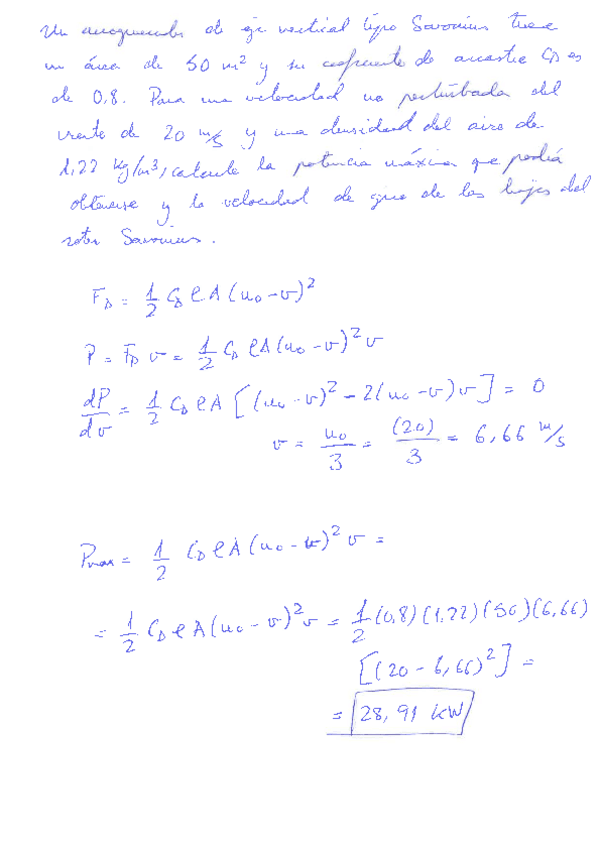 Un aerogenerador de eje vertical tipo Savonius tiene
un área de 50 m² y su coeficiente de arrastre C_D es
de 0,8. Para una velocidad no perturbada del
viento de 20 m/s y una densidad del aire de
1,22 kg/m³, calcule la potencia máxima que podría
obtenerse y la velocidad de giro de las hojas del
rotor Savonius.
F_D = 1/2 C_D ρ A (u_0 - v)²
P = F_D v = 1/2 C_D ρ A (u_0 - v)² v
dP/dv = 1/2 C_D ρ A [(u_0 - v)² - 2(u_0 - v) v] = 0
v = u_0/3 = (20)/3 = 6,66 m/s
P_max = 1/2 C_D ρ A (u_0 - v)² v =
= 1/2 C_D ρ A (u_0 - v)² v = 1/2 (0,8) (1,22) (50) (6,66)
[(20 - 6,66)²] =
= 28,91 kW